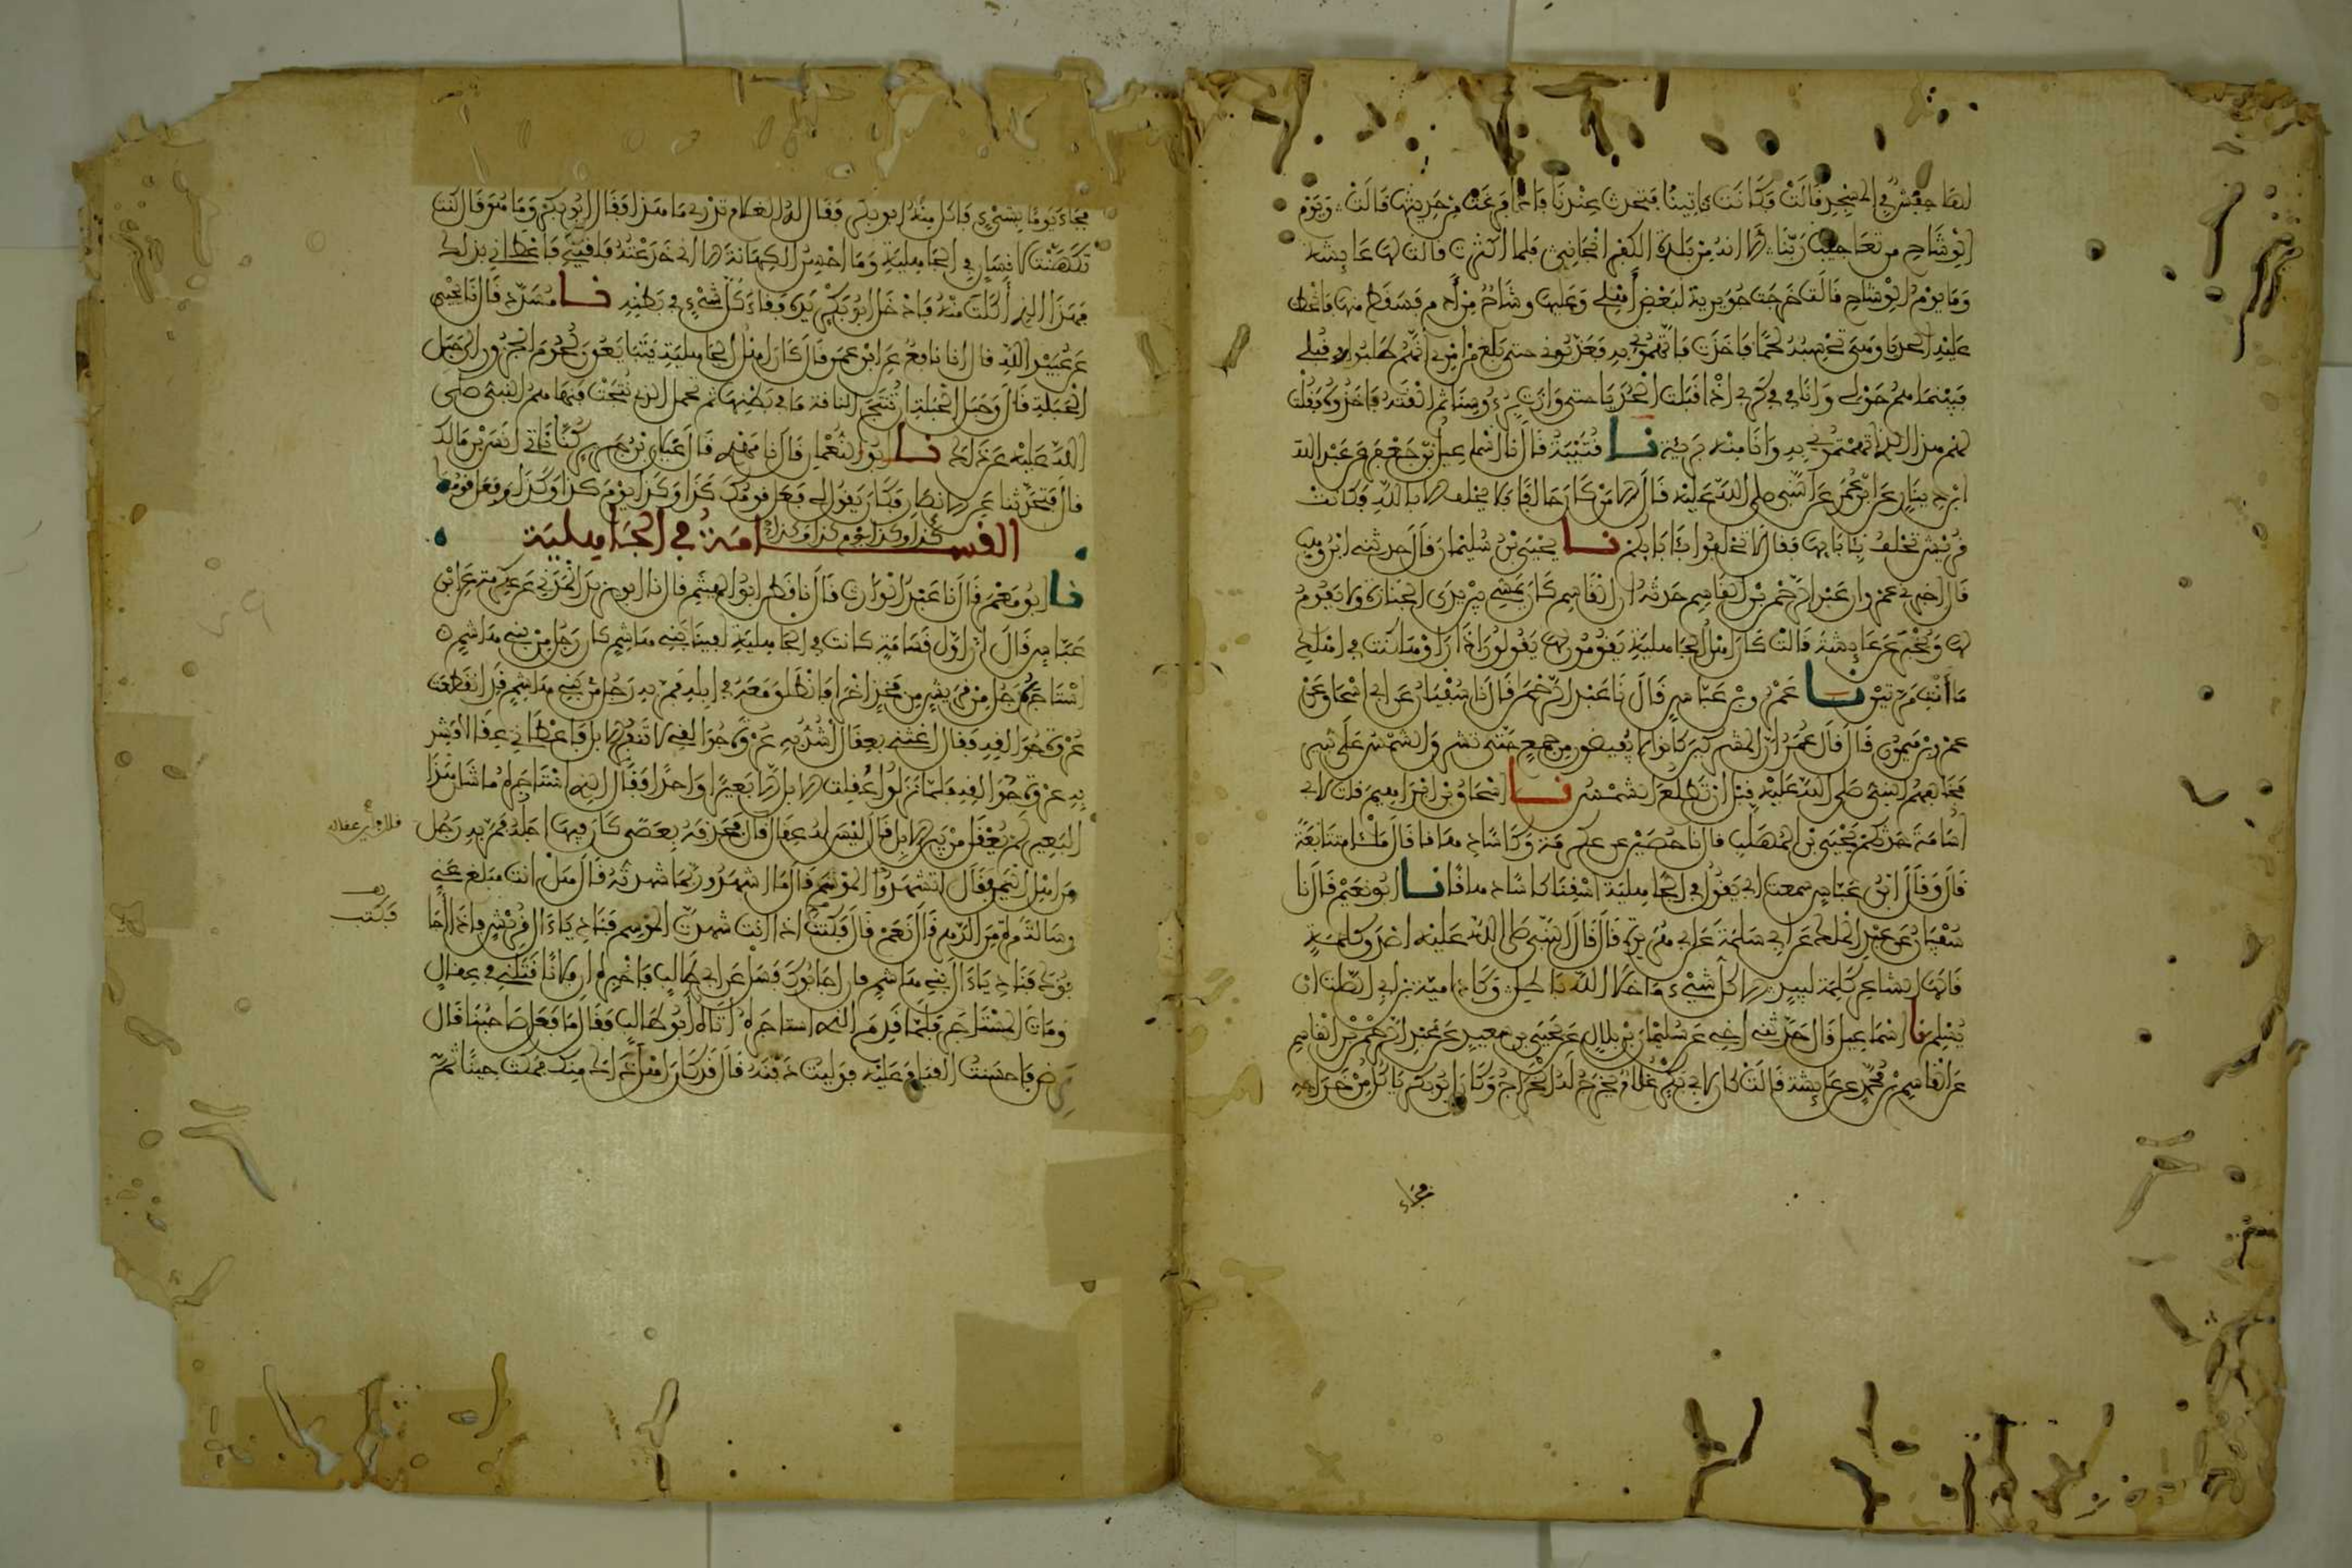 لها حفش في المسجد قالت وكانت تاتينا فتحدث عندنا فاذا فرغت من حديثها قالت ويوم
الوشاح من تعاجيب ربنا الا انه من بلدة الكفر انجاني فلما اكثرت قالت لها عايشة
وما يوم الوشاح قالت خرجت جويرية لبعض اهلي وعليها وشاح من ادم فسقط منها فانحطت
عليه الحديا وهي تحسبه لحما فاخذت فاتهموني به فعذبوني حتى بلغ من امري انهم طلبوا في قبلي
فبينما هم حولي وانا في كربي اذ اقبلت الحديا حتى وازت برءوسنا ثم القته فاخذوه فقلت
لهم هذا الذي اتهمتموني به وانا منه بريئة نا قتيبة قال نا اسماعيل بن جعفر عن عبد الله
ابن دينار عن ابن عمر عن النبي صلى الله عليه قال الا من كان حالفا فلا يحلف الا بالله فكانت
قريش تحلف بئابايها فقال لا تحلفوا بئابايكم نا يحيى بن سليمان قال حدثني ابن وهب
قال اخبرني عمرو ان عبد الرحمن بن القاسم حدثه ان القاسم كان يمشي بين يدي الجنازة ولا يقوم
لها ويخبر عن عايشة قالت كان اهل الجاهلية يقومون لها يقولون اذا راوها كنت في اهلك
ما انت مرتين نا عمرو بن عباس قال نا عبد الرحمن قال نا سفيان عن ابي اسحاق عن
عمرو بن ميمون قال قال عمر ان المشركين كانوا لا يفيضون من جمع حتى تشرق الشمس على ثبير
فخالفهم النبي صلى الله عليه قبل ان تطلع الشمس نا اسحاق بن ابراهيم قلت لابي
اسامة حدثكم يحيى بن المهلب قال نا حصين عن عكرمة وكاسا دهاقا قال ملاى متتابعة
قال وقال ابن عباس سمعت ابي يقول في الجاهلية اسقنا كاسا دهاقا نا ابو نعيم قال نا
سفيان عن عبد الملك عن ابي سلمة عن ابي هريرة قال قال النبي صلى الله عليه اصدق كلمة
قالها الشاعر كلمة لبيد الا كل شيء ما خلا الله باطل وكاد امية بن ابي الصلت ان
يسلم نا اسماعيل قال حدثني اخي عن سليمان بن بلال عن يحيى بن سعيد عن عبد الرحمن بن القاسم
عن القاسم بن محمد عن عايشة قالت كان لابي بكر غلام يخرج له الخراج وكان ابو بكر ياكل من خراجه
فجاء
فجاء يوما بشيء فاكل منه ابو بكر فقال له الغلام تدري ما هذا فقال ابو بكر وما هو قال كنت
تكهنت لانسان في الجاهلية وما احسن الكهانة الا اني خدعته فلقيني فاعطاني بذلك
فهذا الذي اكلت منه فادخل ابو بكر يده فقاء كل شيء في بطنه نا مسدد قال نا يحيى
عن عبيد الله قال انا نافع عن ابن عمر قال كان اهل الجاهلية يتبايعون لحوم الجزور الى حبل
الحبلة قال وحبل الحبلة ان تنتج الناقة ما في بطنها ثم تحمل التي نتجت فنهاهم النبي صلى
الله عليه عن ذلك نا ابو النعمان قال نا مهدي قال غيلان بن جرير كنا ناتي انس بن مالك
قال فتحدثنا عن الانصار فكان يقول لي فعل قومك كذا وكذا يوم كذا وكذا وفعل قومك
كذا وكذا يوم كذا وكذا
القسامة في الجاهلية
نا ابو معمر قال نا عبد الوارث قال نا قطن ابو الهيثم قال نا ابو يزيد المدني عن عكرمة عن ابن
عباس قال ان اول قسامة كانت في الجاهلية لفينا بني هاشم كان رجل من بني هاشم
استاجره رجل من قريش من فخذ اخرى فانطلق معه في ابله فمر به رجل من بني هاشم قد انقطعت
عروة جوالقه فقال اغثني بعقال اشد به عروة جوالقي لا تنفر الابل فاعطاني عقالا فشد
به عروة جوالقه فلما نزلوا عقلت الابل الا بعيرا واحدا فقال الذي استاجره ما شان هذا
البعير لم يعقل من بين الابل قال ليس له عقال قال فحذفه بعصى كان فيها اجله فمر به رجل
من اهل اليمن فقال اتشهد الموسم قال ما اشهد وربما شهدته قال هل انت مبلغ عني
رسالة مرة من الدهر قال نعم قال فكتب اذا انت شهدت الموسم فناد ياءال قريش فاذا اجا
بوك فناد ياءال بني هاشم فان اجابوك فسل عن ابي طالب فاخبره ان فلانا قتلني في عقال
ومات المستاجر فلما قدم الذي استاجره اتاه ابو طالب فقال ما فعل صاحبنا قال
مرض فاحسنت القيام عليه فوليت دفنه قال قد كان اهل ذاك منك فمكث حينا ثم
فكتب